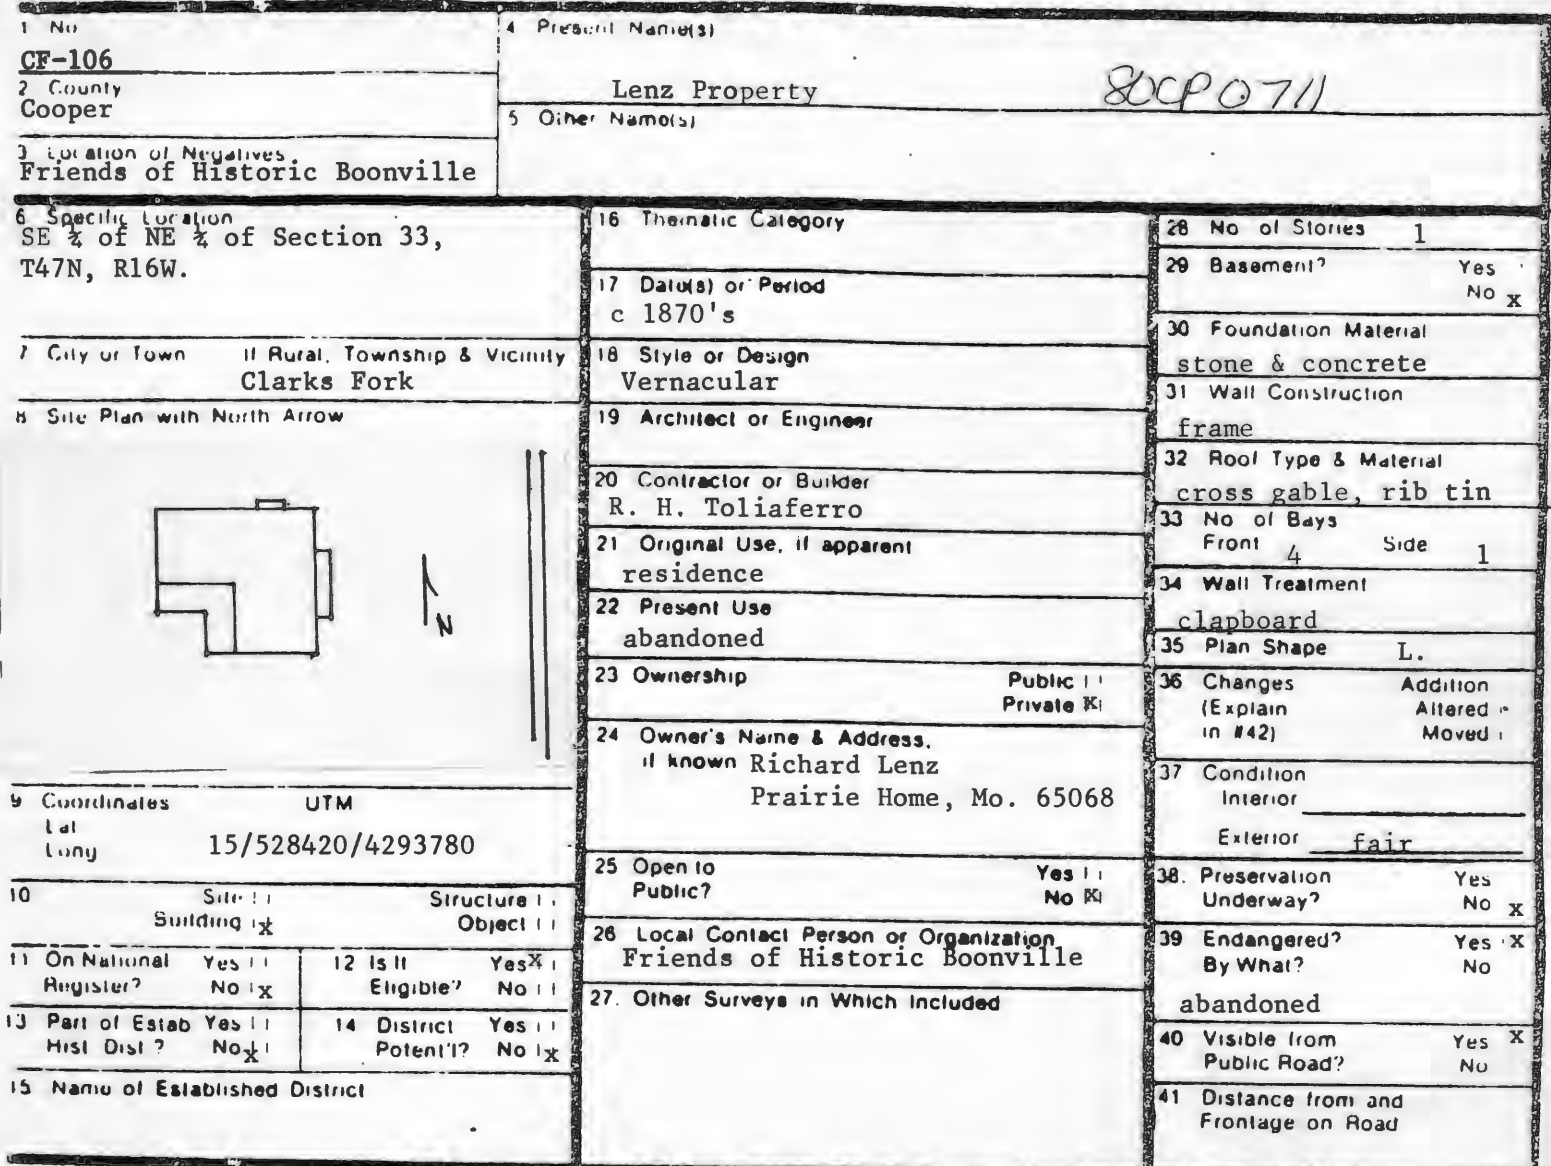 1 No
CF-106
2 County
Cooper
3 Location of Negatives
Friends of Historic Boonville
4 Present Name(s)
Lenz Property
80CP0711
5 Other Name(s)
6 Specific Location
SE ¼ of NE ¼ of Section 33,
T47N, R16W.
7 City or Town If Rural, Township & Vicinity
Clarks Fork
8 Site Plan with North Arrow
N
9 Coordinates UTM
Lat
Long 15/528420/4293780
10 Site Structure
Building x Object
11 On National Register? Yes No x
12 Is It Eligible? Yes X No
13 Part of Estab Hist Dist? Yes No x
14 District Potent'l? Yes No x
15 Name of Established District
16 Thematic Category
17 Date(s) or Period
c 1870's
18 Style or Design
Vernacular
19 Architect or Engineer
20 Contractor or Builder
R. H. Toliaferro
21 Original Use, if apparent
residence
22 Present Use
abandoned
23 Ownership Public
Private X
24 Owner's Name & Address,
if known Richard Lenz
Prairie Home, Mo. 65068
25 Open to Yes
Public? No X
26 Local Contact Person or Organization
Friends of Historic Boonville
27. Other Surveys in Which Included
28 No of Stories 1
29 Basement? Yes
No x
30 Foundation Material
stone & concrete
31 Wall Construction
frame
32 Roof Type & Material
cross gable, rib tin
33 No of Bays
Front 4 Side 1
34 Wall Treatment
clapboard
35 Plan Shape L.
36 Changes Addition
(Explain Altered
in #42) Moved
37 Condition
Interior
Exterior fair
38. Preservation Yes
Underway? No x
39 Endangered? Yes X
By What? No
abandoned
40 Visible from Yes X
Public Road? No
41 Distance from and
Frontage on Road